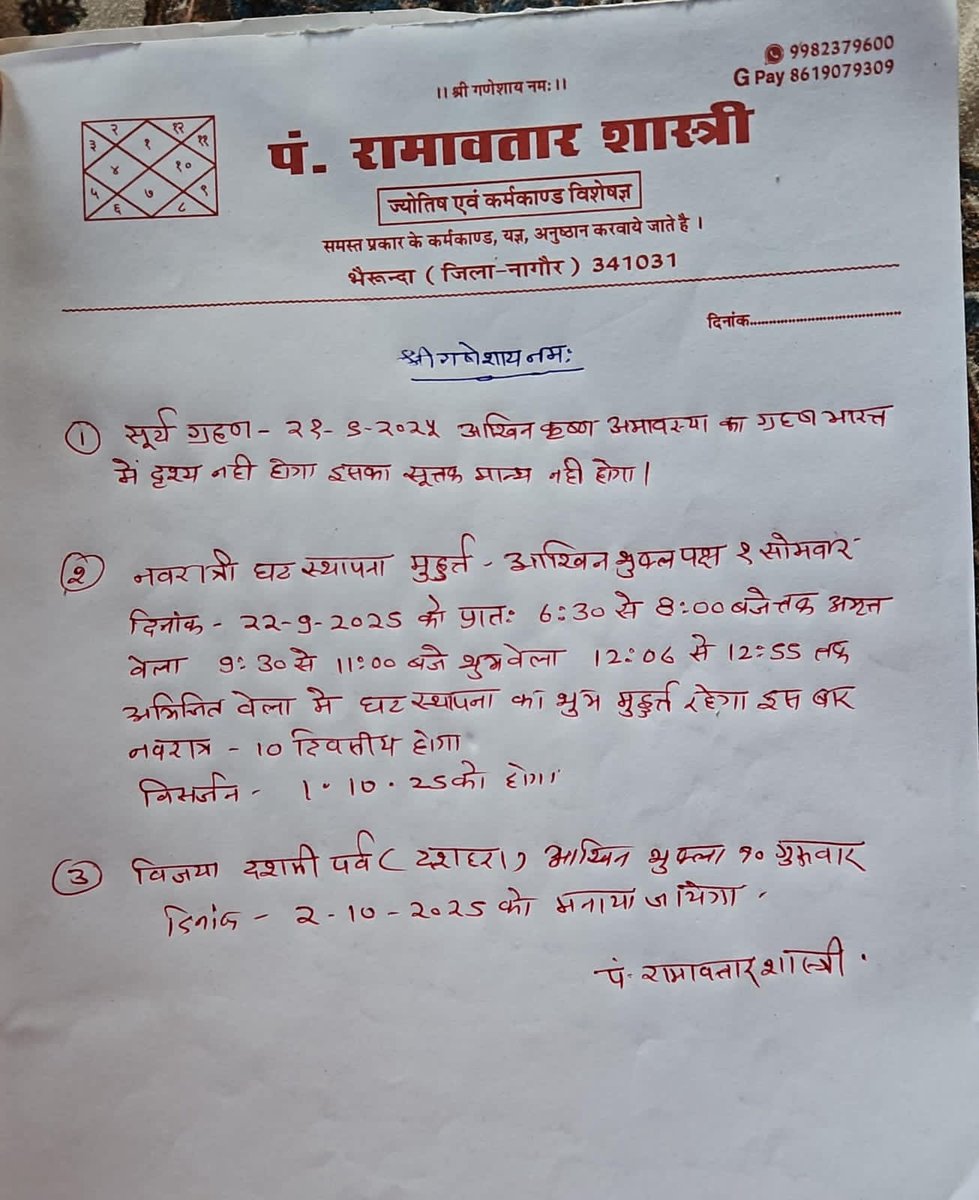 9982379600
G Pay 8619079309
।। श्री गणेशाय नमः ।।
पं. रामावतार शास्त्री
ज्योतिष एवं कर्मकाण्ड विशेषज्ञ
समस्त प्रकार के कर्मकाण्ड, यज्ञ, अनुष्ठान करवाये जाते है ।
भैरून्दा ( जिला-नागौर ) 341031
२ १२
३ १ ११
४ १०
५ ७ ९
६ ८
दिनांक.......................................
श्री गणेशाय नमः
① सूर्य ग्रहण - २१- ९-२०२५ अश्विन कृष्ण अमावस्या का ग्रहण भारत
में दृश्य नही होगा इसका सूत्तक मान्य नही होगा।
② नवरात्री घट स्थापना मुहुर्त - आश्विन शुक्ल पक्ष १ सोमवार
दिनांक - 22-9-2025 को प्रातः 6:30 से 8:00 बजेतक अमृत
वेला 9:30 से 11:00 बजे शुभ वेला 12:06 से 12:55 तक
अभिजित वेला मे घट स्थापना का शुभ मुहुर्त रहेगा इस बार
नवरात्र - 10 दिवसीय होगा
विसर्जन - 1.10.25 को होगा
③ विजया दशमी पर्व ( दशहरा ) आश्विन शुक्ला १० गुरूवार
दिनांक - 2-10-2025 को मनाया जायेगा .
पं. रामावतार शास्त्री .